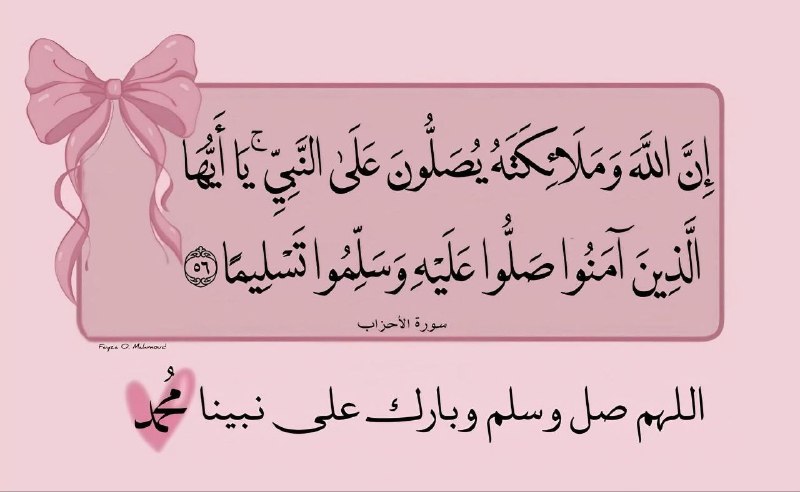 إِنَّ اللَّهَ وَمَلَائِكَتَهُ يُصَلُّونَ عَلَى النَّبِيِّ ۚ يَا أَيُّهَا
الَّذِينَ آمَنُوا صَلُّوا عَلَيْهِ وَسَلِّمُوا تَسْلِيمًا ٥٦
سورة الأحزاب
Fayza O. Mahmoud
اللهم صل وسلم وبارك على نبينا مُحمد